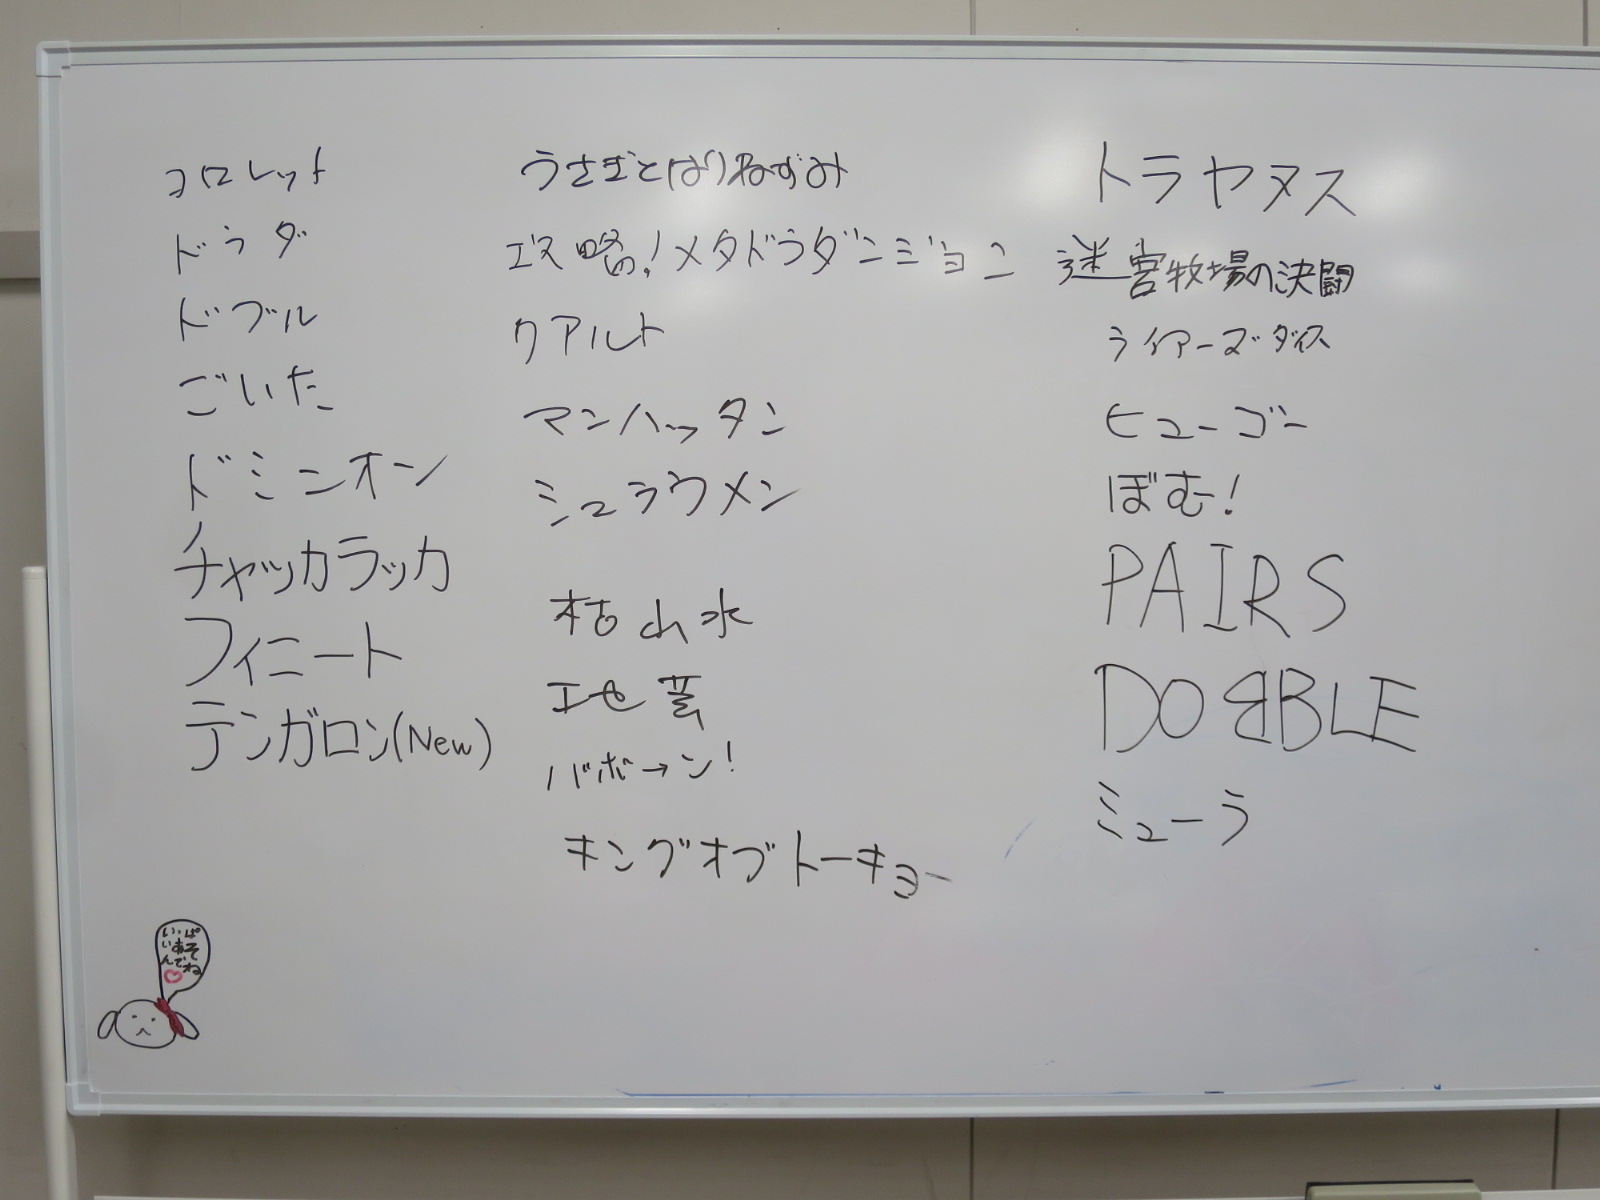 コロレット
ドラダ
ドブル
ごいた
ドミニオン
チャッカラッカ
フィニート
テンガロン(New)
うさぎとはりねずみ
攻略!メタドラダンジョン
クアルト
マンハッタン
シュラウメン
枯山水
工芸
バボーン!
キングオブトーキョー
トラヤヌス
迷宮牧場の決闘
ライアーズダイス
ヒューゴー
ぼむー!
PAIRS
DOBBLE
ミューラ
いっぱい
あそんでね♡